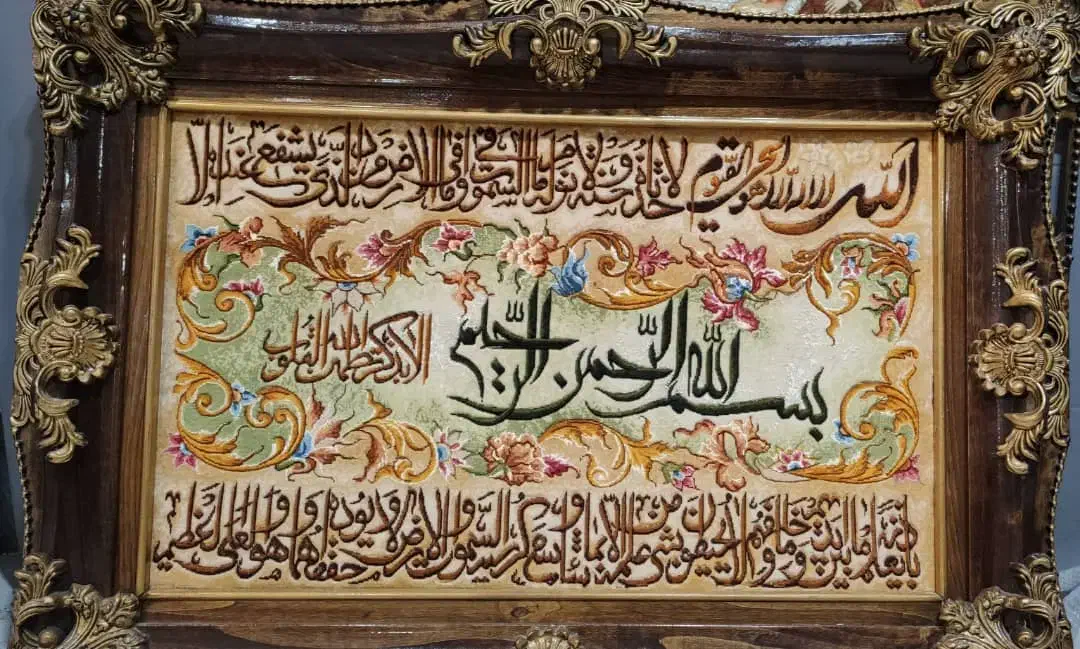 الله لا اله الا هو الحی القیوم لا تأخذه سنة ولا نوم له ما فی السموات وما فی الارض من ذا الذی یشفع عنده الا
بسم الله الرحمن الرحیم
الا بذکر الله تطمئن القلوب
باذنه یعلم ما بین ایدیهم وما خلفهم ولا یحیطون بشیء من علمه الا بما شاء وسع کرسیه السموات والارض ولا یؤده حفظهما وهو العلی العظیم